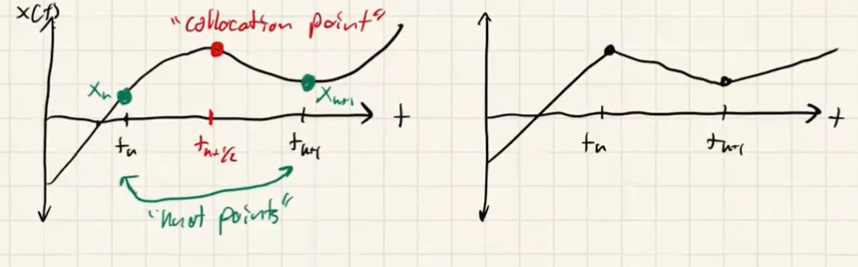 x(t)
"collocation point"
x_n
x_{n+1}
t
t_n
t_{n+1/2}
t_{n+1}
"knot points"
t
t_n
t_{n+1}